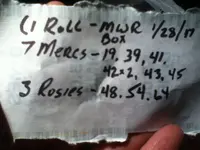 (1 Roll - MWR 1/28/
Box
7 Mercs - 19, 39, 41,
42x2, 43, 45
3 Rosies - 48, 54, 64